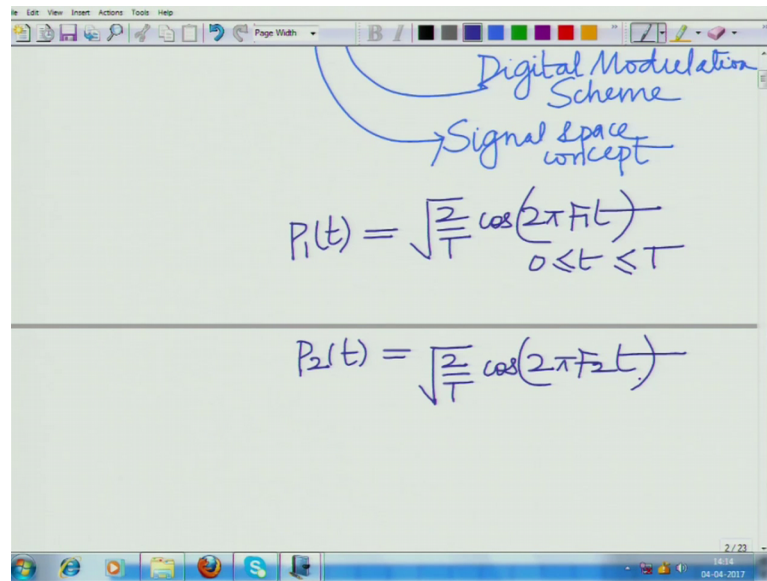 File Edit View Insert Actions Tools Help
Page Width
B I
Digital Modulation
Scheme
Signal space
concept
P₁(t) = √(2/T) cos(2πF₁t)
0 ≤ t ≤ T
P₂(t) = √(2/T) cos(2πF₂t)
2 / 23
14:14
04-04-2017